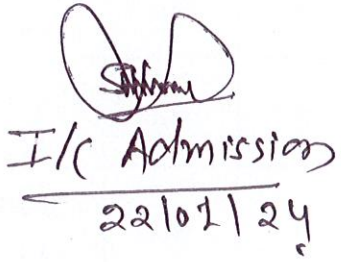 I/C Admission
22/01/24